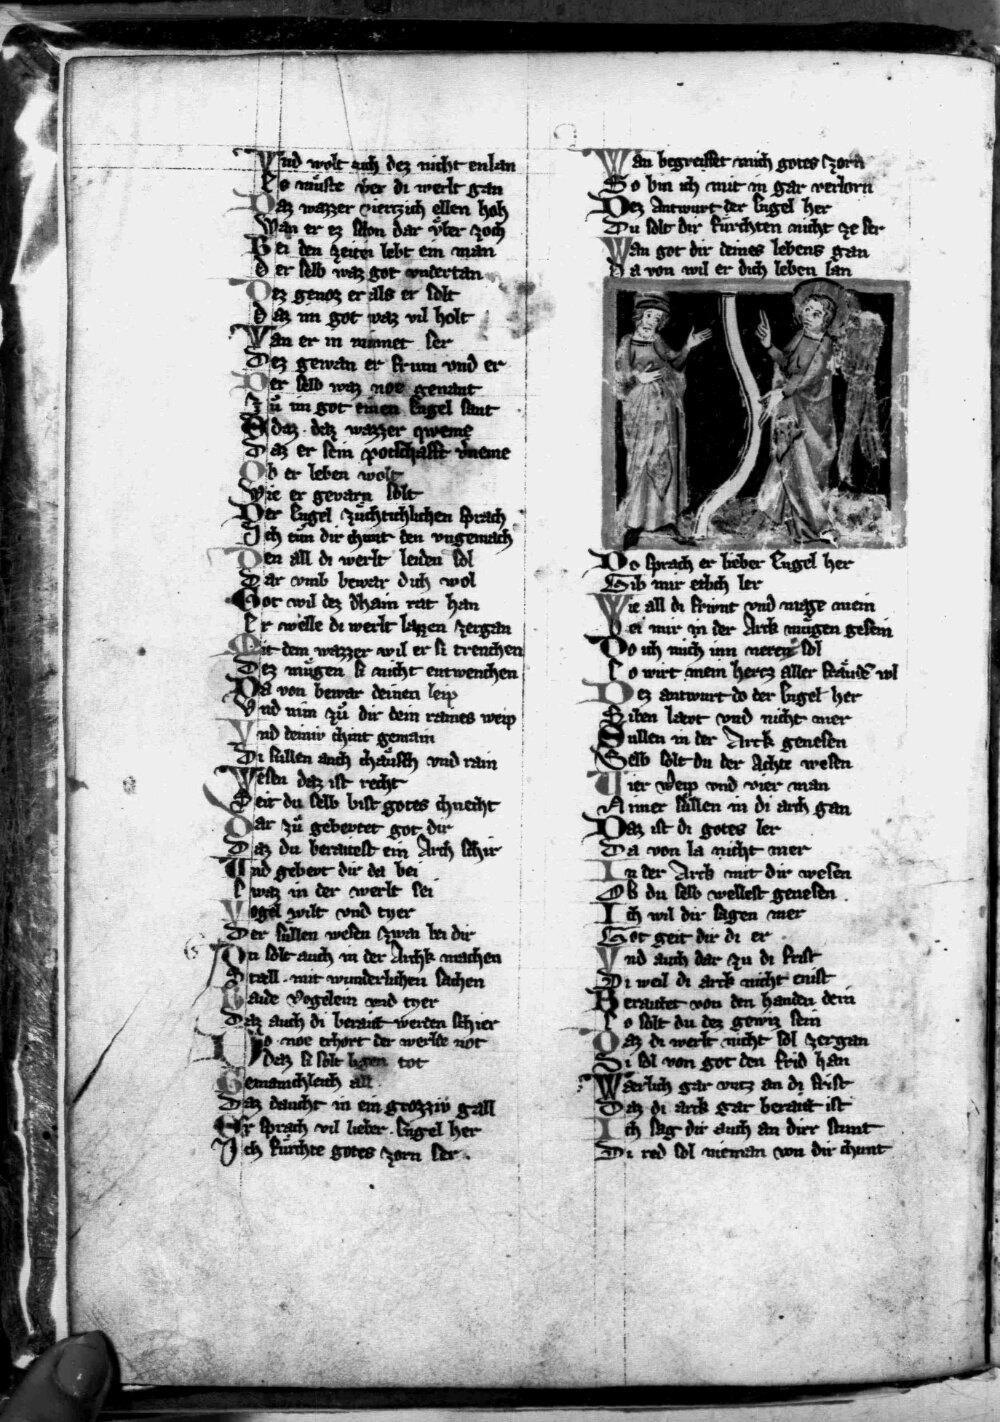 Vnd wolt auch dez nicht enlan
So muͤste vber di werlt gan
Daz wazzer vierzich ellen hoh
Wan er ez schon dar vͤber zoch
Bei den zeiten lebt ein man
der selb waz got vndertan
Dez genoz er als er solt
daz im got waz vil holt
Wan er in minnet ser
Dez gewan er frum vnd er
Der selb waz noe genant
Zuͦ im got einen Engel sant
E daz daz wazzer qweme
Daz er sein potschafft v̓neme
Ob er leben wolt
Wie er gevarn solt
Der Engel zuͤchtichlichen sprach
Ich tuͦn dir chunt den vngemach
Den all di werlt leiden sol
Dar vmb bewar dich wol
Got wil dez dhain rat han
Er welle di werlt lazzen zergan
Mit dem wazzer wil er si trenchen
Dez muͤgen si nicht entwenchen
Da von bewar deinen leip
Vnd nim zuͦ dir dein raines weip
Vnd deiniv chint gemain
Di suͤllen auch chaͤusch vnd rain
Wesen daz ist recht
Seit du selb bist gotes chnecht
Dar zuͦ gebevtet got dir
Daz du beraitest ein Arch schir
Vnd gebevt dir da bei
Swaz in der werlt sei
Vogel wilt vnd tyer
Der suͤllen wesen zwai bei dir
Du solt auch in der Archk machen
Staell mit wunderlichen sachen
Baide Vogelein vnd tyer
Daz auch di berait werden schier
Do noe erhort der werlde not
daz si solt ligen tot
Gemainchleich all
Daz daucht in ein grozziv gall
Er sprach vil lieber Engel her
Ich fuͤrchte gotes zorn ser
Wan begreiffet mich gotes zorn
So bin ich mit in gar verlorn
Dez Antwurt der Engel her
Du solt dir fuͤrchten nicht ze ser
Wan got dir deines lebens gan
Da von wil er dich leben lan
Do sprach er lieber Engel her
Gib mir etlich ler
Wie all di frivnt vnd mage mein
Bei mir in der Arck muͤgen gesein
Do ich mich inn neren sol
So wirt mein hercz aller fraͤude vol
Dez antwurt do der Engel her
Siben laevt vnd nicht mer
Sullen in der Arck genesen
Selb solt du der Achte wesen
Vier weip vnd vier man
Nimer suͤllen in di arch gan
Daz ist di gotes ler
Da von la nicht mer
In der Arck mit dir wesen
Ob du selb wellest genesen
Ich wil dir sagen mer
Got geit dir di er
Vnd auch dar zu di frist
Di weil di arck nicht enist
Beraitet von den handen dein
So solt du dez gewiz sein
Daz di werlt nicht sol zergan
Si sol von got den frid han
Waerlich gar vntz an di frist
Daz di arck gar berait ist
Ich sag dir auch an dirr stunt
Di red sol nieman von dir chunt